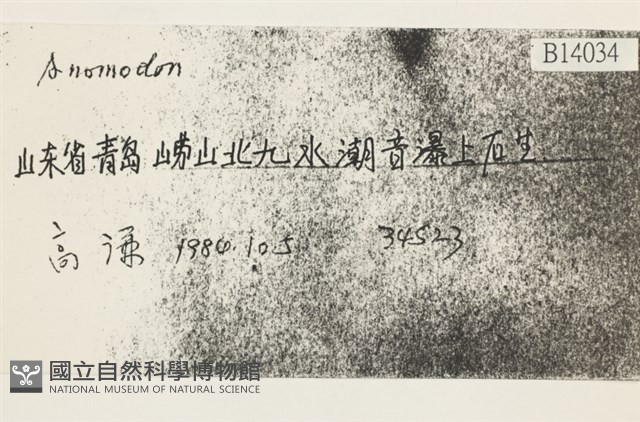 B14034
Anomodon
山东省青岛崂山北九水潮音瀑上石生
高谦 1984.10.5 34523
國立自然科學博物館
NATIONAL MUSEUM OF NATURAL SCIENCE